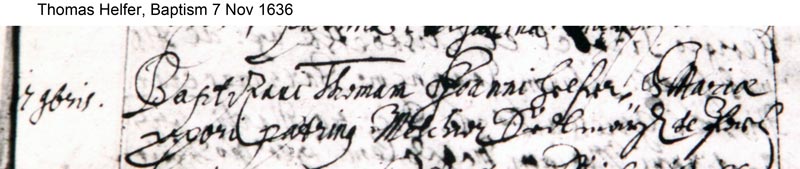 Thomas Helfer, Baptism 7 Nov 1636
7 9bris. Baptizavi Thomam Joanni Helfer, & Maria
uxori patrinus Melchior de